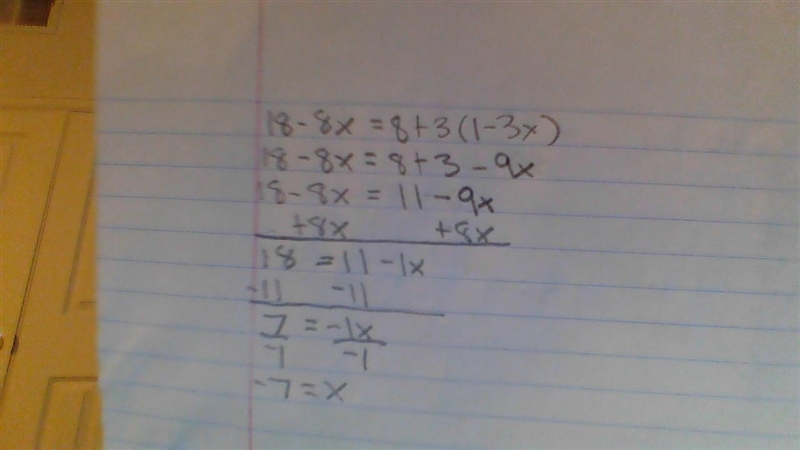 18-8x=8+3(1-3x)
18-8x=8+3-9x
18-8x=11-9x
+8x +8x
18=11-1x
-11 -11
7=-1x
-1 -1
-7=x